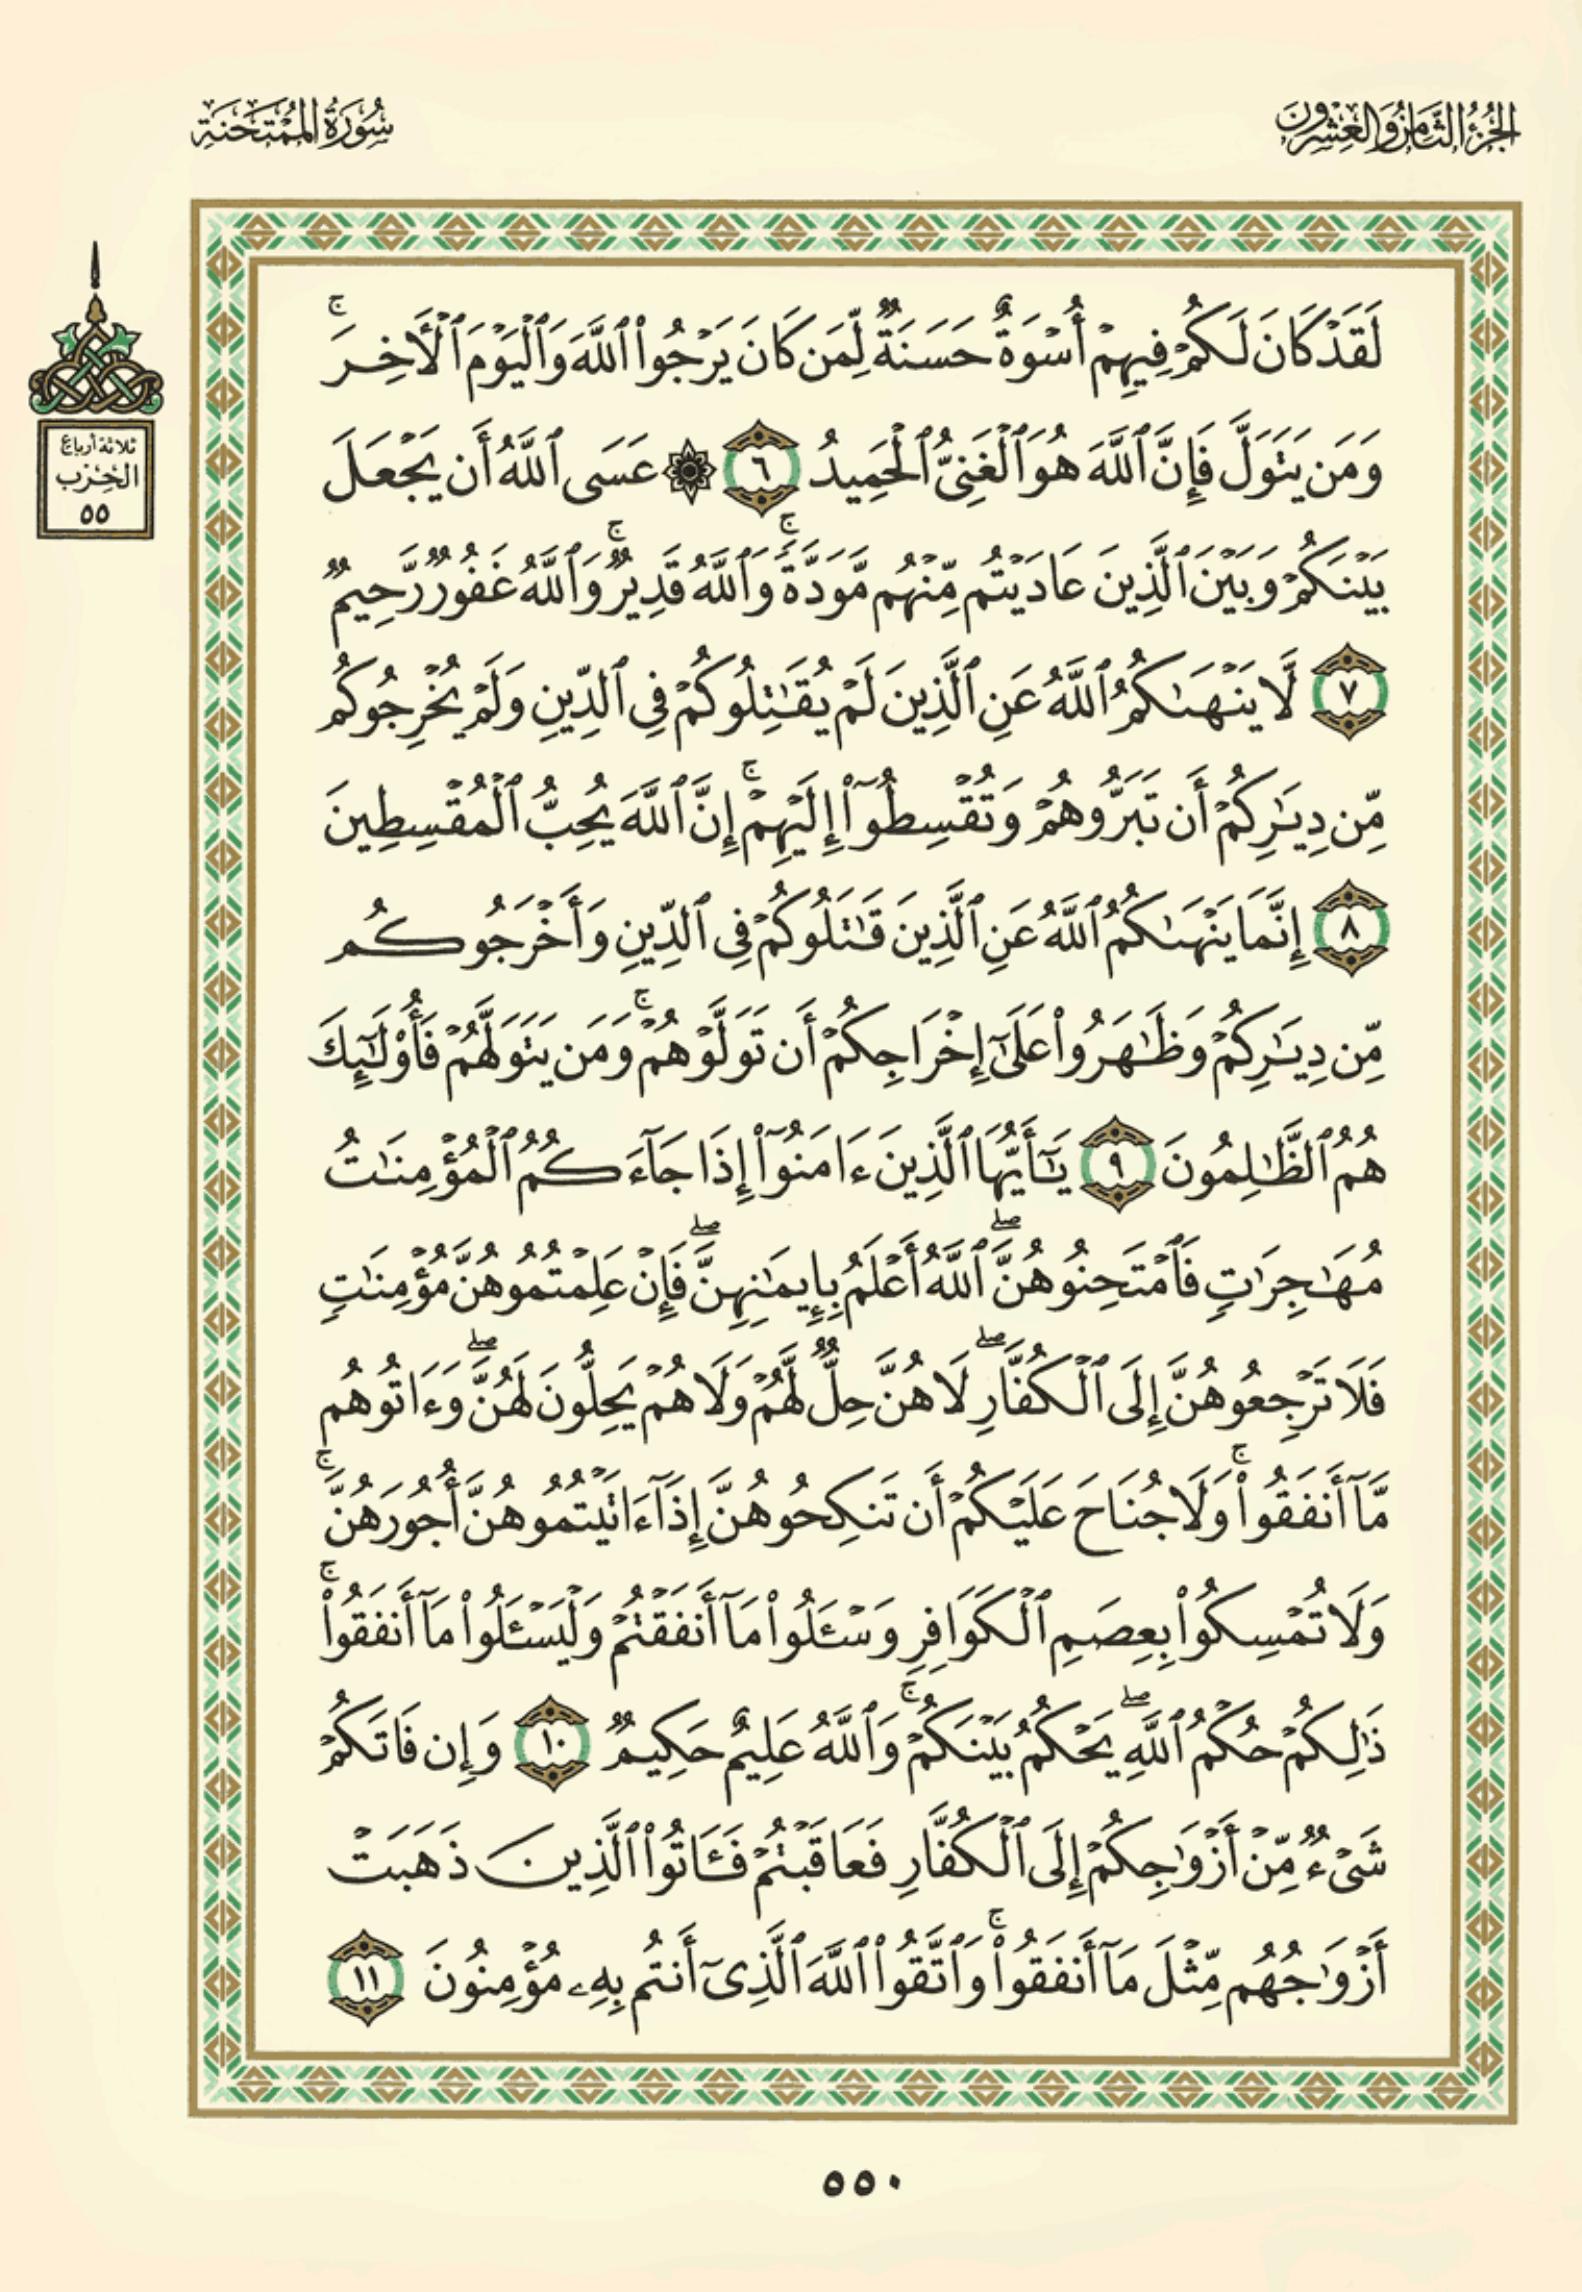 الجزء الثامن والعشرون
سورة الممتحنة
ثلاثة أرباع
الحزب
٥٥
لَقَدْ كَانَ لَكُمْ فِيهِمْ أُسْوَةٌ حَسَنَةٌ لِّمَن كَانَ يَرْجُوا۟ ٱللَّهَ وَٱلْيَوْمَ ٱلْـَٔاخِرَ ۚ
وَمَن يَتَوَلَّ فَإِنَّ ٱللَّهَ هُوَ ٱلْغَنِىُّ ٱلْحَمِيدُ ٦ ۞ عَسَى ٱللَّهُ أَن يَجْعَلَ
بَيْنَكُمْ وَبَيْنَ ٱلَّذِينَ عَادَيْتُم مِّنْهُم مَّوَدَّةً ۚ وَٱللَّهُ قَدِيرٌ ۚ وَٱللَّهُ غَفُورٌ رَّحِيمٌ
٧ لَّا يَنْهَىٰكُمُ ٱللَّهُ عَنِ ٱلَّذِينَ لَمْ يُقَـٰتِلُوكُمْ فِى ٱلدِّينِ وَلَمْ يُخْرِجُوكُم
مِّن دِيَـٰرِكُمْ أَن تَبَرُّوهُمْ وَتُقْسِطُوٓا۟ إِلَيْهِمْ ۚ إِنَّ ٱللَّهَ يُحِبُّ ٱلْمُقْسِطِينَ
٨ إِنَّمَا يَنْهَىٰكُمُ ٱللَّهُ عَنِ ٱلَّذِينَ قَـٰتَلُوكُمْ فِى ٱلدِّينِ وَأَخْرَجُوكُم
مِّن دِيَـٰرِكُمْ وَظَـٰهَرُوا۟ عَلَىٰٓ إِخْرَاجِكُمْ أَن تَوَلَّوْهُمْ ۚ وَمَن يَتَوَلَّهُمْ فَأُو۟لَـٰٓئِكَ
هُمُ ٱلظَّـٰلِمُونَ ٩ يَـٰٓأَيُّهَا ٱلَّذِينَ ءَامَنُوٓا۟ إِذَا جَآءَكُمُ ٱلْمُؤْمِنَـٰتُ
مُهَـٰجِرَٰتٍ فَٱمْتَحِنُوهُنَّ ۖ ٱللَّهُ أَعْلَمُ بِإِيمَـٰنِهِنَّ ۖ فَإِنْ عَلِمْتُمُوهُنَّ مُؤْمِنَـٰتٍ
فَلَا تَرْجِعُوهُنَّ إِلَى ٱلْكُفَّارِ ۖ لَا هُنَّ حِلٌّ لَّهُمْ وَلَا هُمْ يَحِلُّونَ لَهُنَّ ۖ وَءَاتُوهُم
مَّآ أَنفَقُوا۟ ۚ وَلَا جُنَاحَ عَلَيْكُمْ أَن تَنكِحُوهُنَّ إِذَآ ءَاتَيْتُمُوهُنَّ أُجُورَهُنَّ ۚ
وَلَا تُمْسِكُوا۟ بِعِصَمِ ٱلْكَوَافِرِ وَسْـَٔلُوا۟ مَآ أَنفَقْتُمْ وَلْيَسْـَٔلُوا۟ مَآ أَنفَقُوا۟ ۚ
ذَٰلِكُمْ حُكْمُ ٱللَّهِ ۖ يَحْكُمُ بَيْنَكُمْ ۚ وَٱللَّهُ عَلِيمٌ حَكِيمٌ ١٠ وَإِن فَاتَكُمْ
شَىْءٌ مِّنْ أَزْوَٰجِكُمْ إِلَى ٱلْكُفَّارِ فَعَاقَبْتُمْ فَـَٔاتُوا۟ ٱلَّذِينَ ذَهَبَتْ
أَزْوَٰجُهُم مِّثْلَ مَآ أَنفَقُوا۟ ۚ وَٱتَّقُوا۟ ٱللَّهَ ٱلَّذِىٓ أَنتُم بِهِۦ مُؤْمِنُونَ ١١
٥٥٠